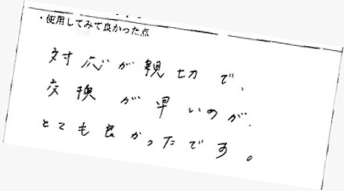 ・使用してみて良かった点
対応が親切で、
交換が早いのが、
とても良かったです。